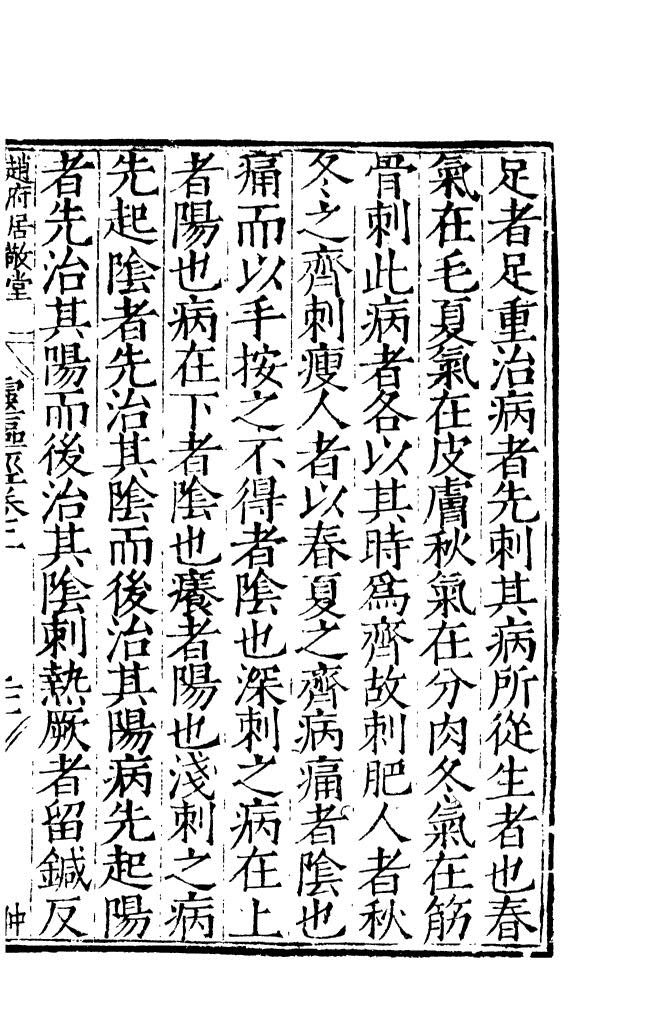 足者足重治病者先刺其病所從生者也春
氣在毛夏氣在皮膚秋氣在分肉冬氣在筋
骨刺此病者各以其時爲齊故刺肥人者秋
冬之齊刺瘦人者以春夏之齊病痛者陰也
痛而以手按之不得者陰也深刺之病在上
者陽也病在下者陰也癢者陽也淺刺之病
先起陰者先治其陰而後治其陽病先起陽
者先治其陽而後治其陰刺熱厥者留鍼反
趙府居敬堂 靈樞經卷三 三 仲